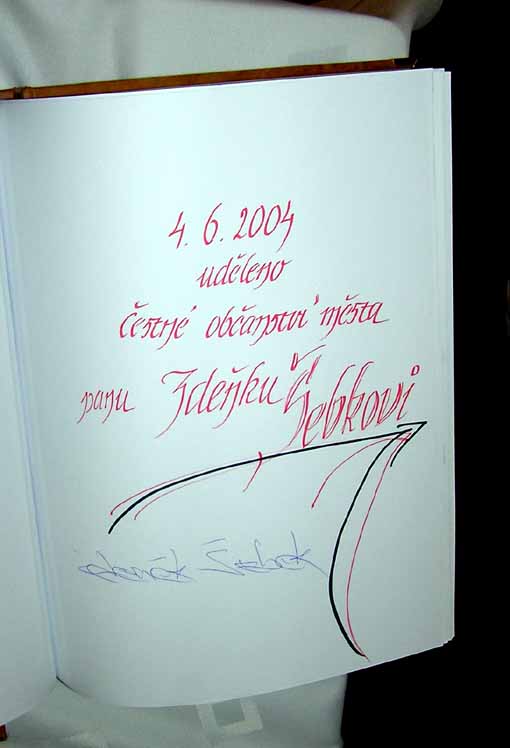 4. 6. 2004
uděleno
čestné občanství města
panu Zdeňku Šebkovi
Zdeněk Šebek